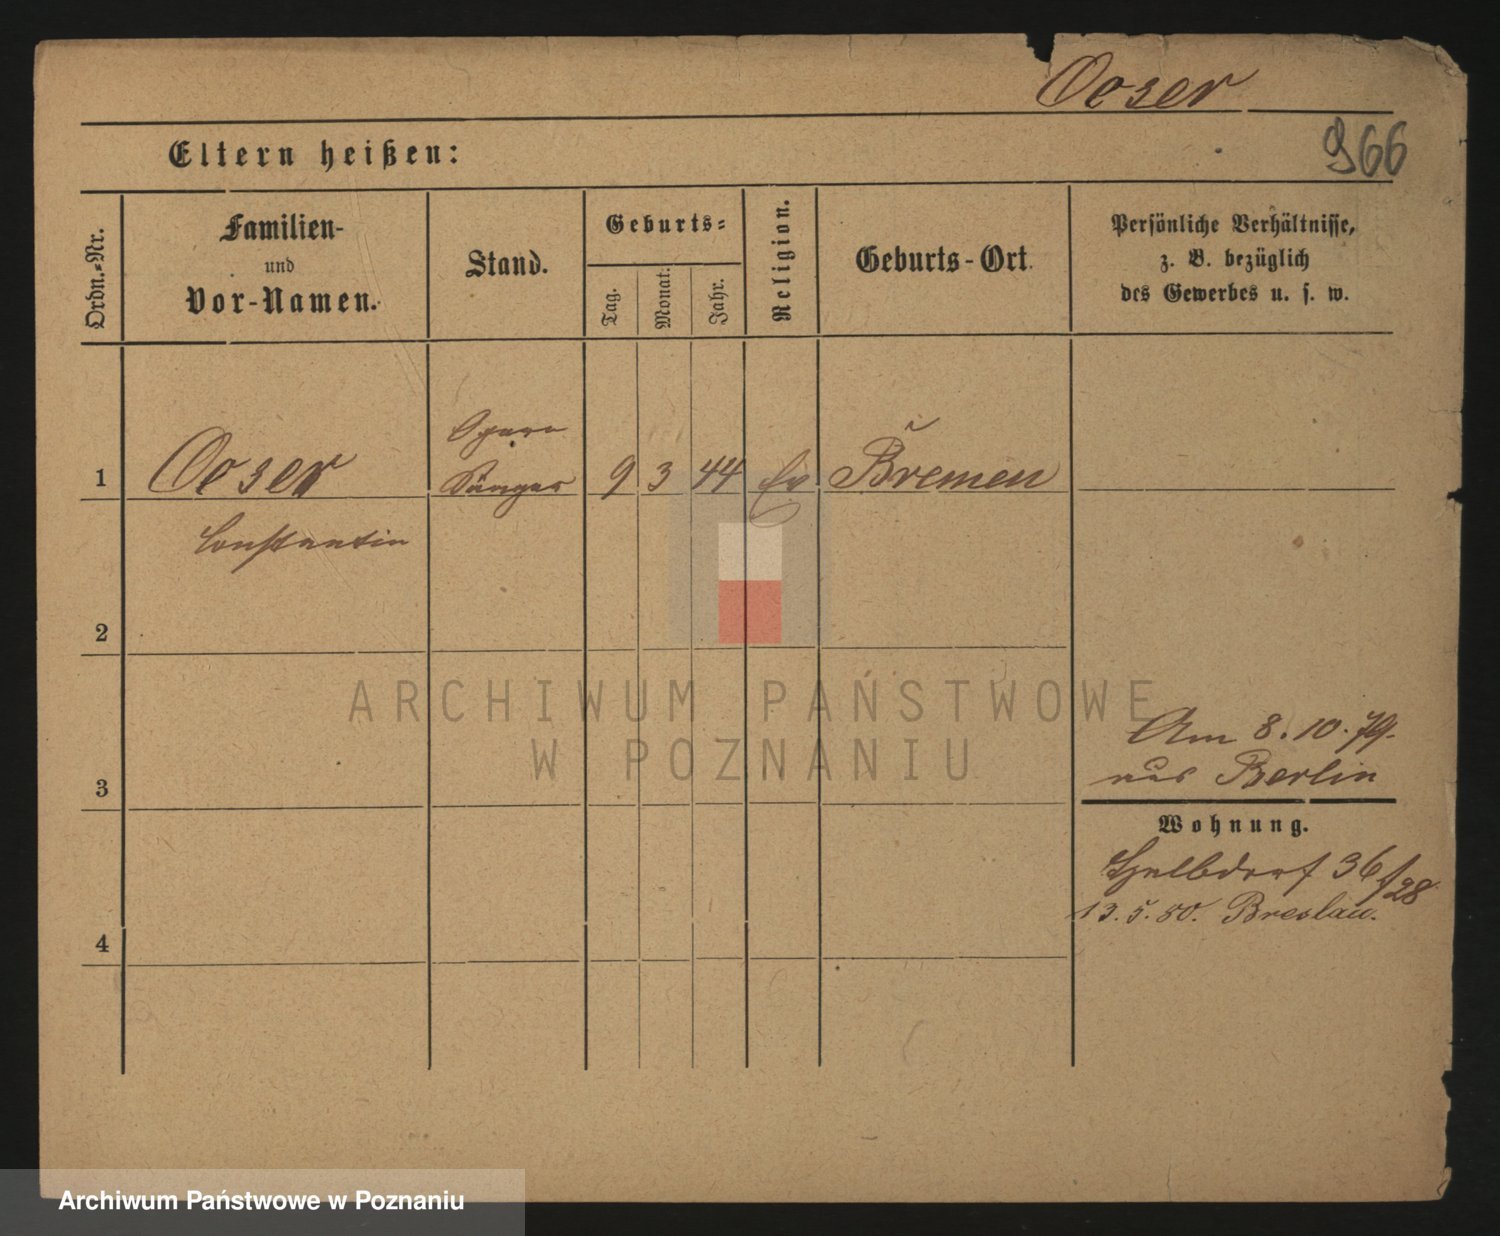 Oeser
966
Eltern heißen:
Ordn.-Nr.
Familien-
und
Vor-Namen.
Stand.
Geburts-
Tag.
Monat.
Jahr.
Religion.
Geburts-Ort.
Persönliche Verhältnisse,
z. B. bezüglich
des Gewerbes u. s. w.
Opern
1 Oeser Sänger 9 3 44 Ev Bremen
Constantin
2
ARCHIWUM PAŃSTWOWE
W POZNANIU
Am 8.10.79.
aus Berlin
3
Wohnung.
Halbdorf 36/28
13.5.80. Breslau.
4
Archiwum Państwowe w Poznaniu